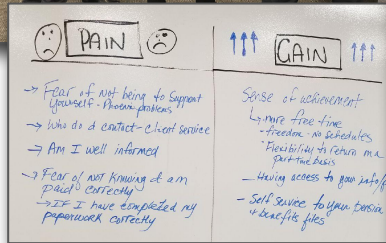 PAIN
→ Fear of not being to support
yourself - Phoenix problems
→ Who do I contact - client service
→ Am I well informed
→ Fear of not knowing if am
paid correctly
→ If I have completed my
paperwork correctly
GAIN
Sense of achievement
↳ more free time
- freedom - no schedules
- Flexibility to return on a
part time basis
- Having access to your info
- Self service to your pension
+ benefits files